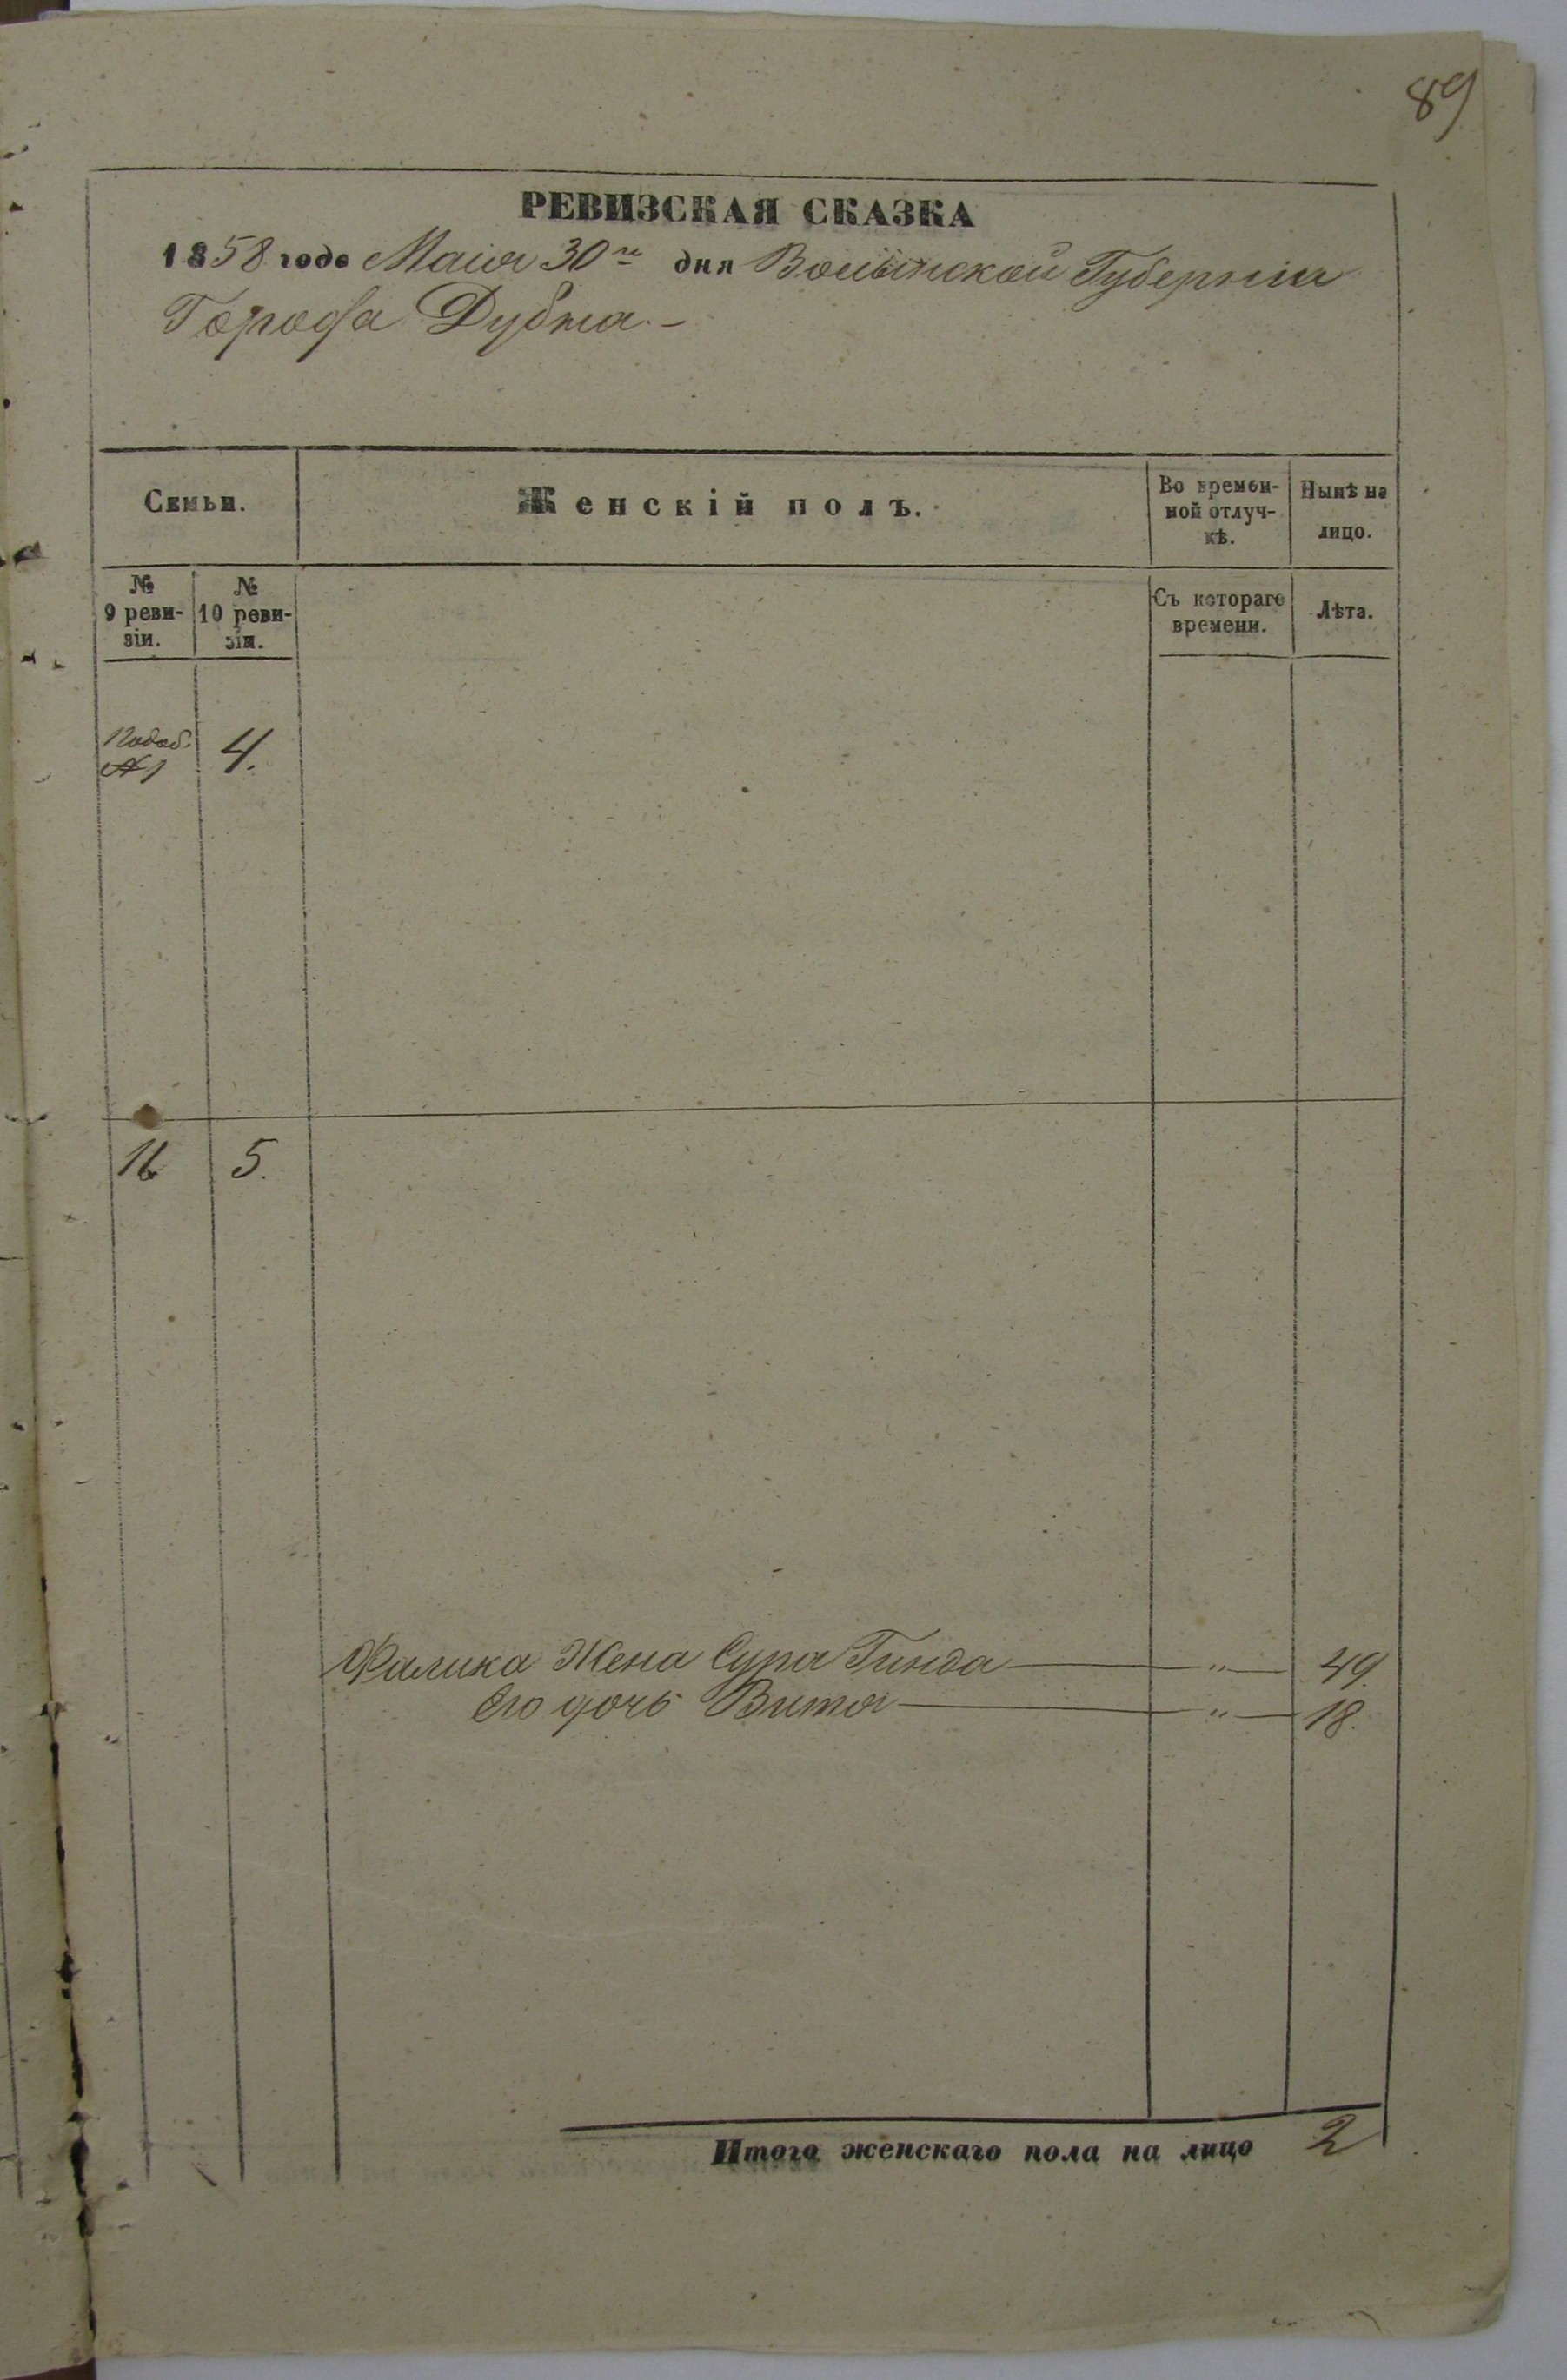 89
РЕВИЗСКАЯ СКАЗКА
1858 года Маія 30го дня Волынской Губерніи
Города Дубна.—
Семьи.
Женскій полъ.
Во времен-
ной отлуч-
кѣ.
Нынѣ на
лицо.
№
9 реви-
зіи.
№
10 реви-
зіи.
Съ котораго
времени.
Лѣта.
№1
4.
16
5.
Фалика Жена Сура Гинда — " — 49.
Его дочь Вита — " — 18.
Итого женскаго пола на лицо 2